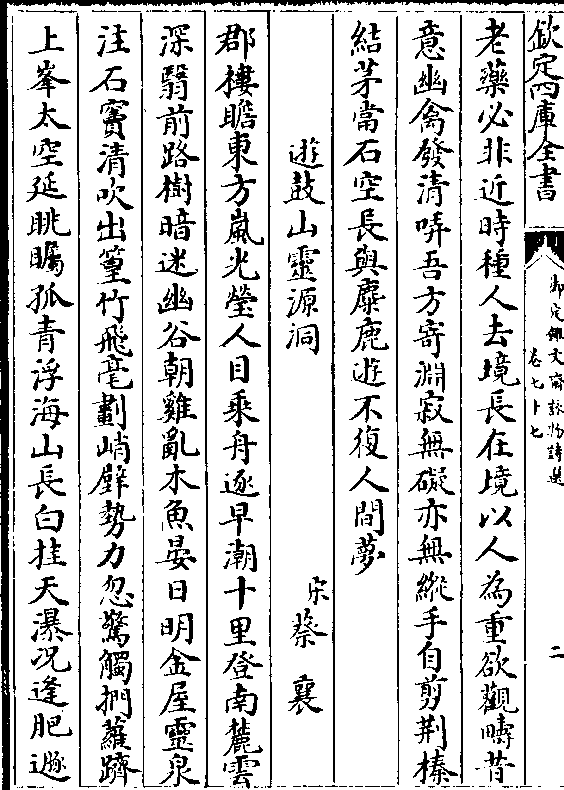 欽定四庫全書
御定佩文齋詠物詩選
卷七十七
二
老藥必非近時種人去境長在境以人為重欲觀疇昔
意幽禽發清哢吾方寄淵寂無礙亦無縱手自剪荆榛
結茅當石空長與麋鹿遊不復人間夢
遊鼓山靈源洞
宋蔡襄
郡樓瞻東方嵐光瑩人目乘舟逐早潮十里登南麓雲
深翳前路樹暗迷幽谷朝雞亂木魚晏日明金屋靈泉
注石竇清吹出篁竹飛毫劃峭壁勢力忽驚觸捫蘿躋
上峯太空延眺矚孤青浮海山長白挂天瀑况逢肥遯